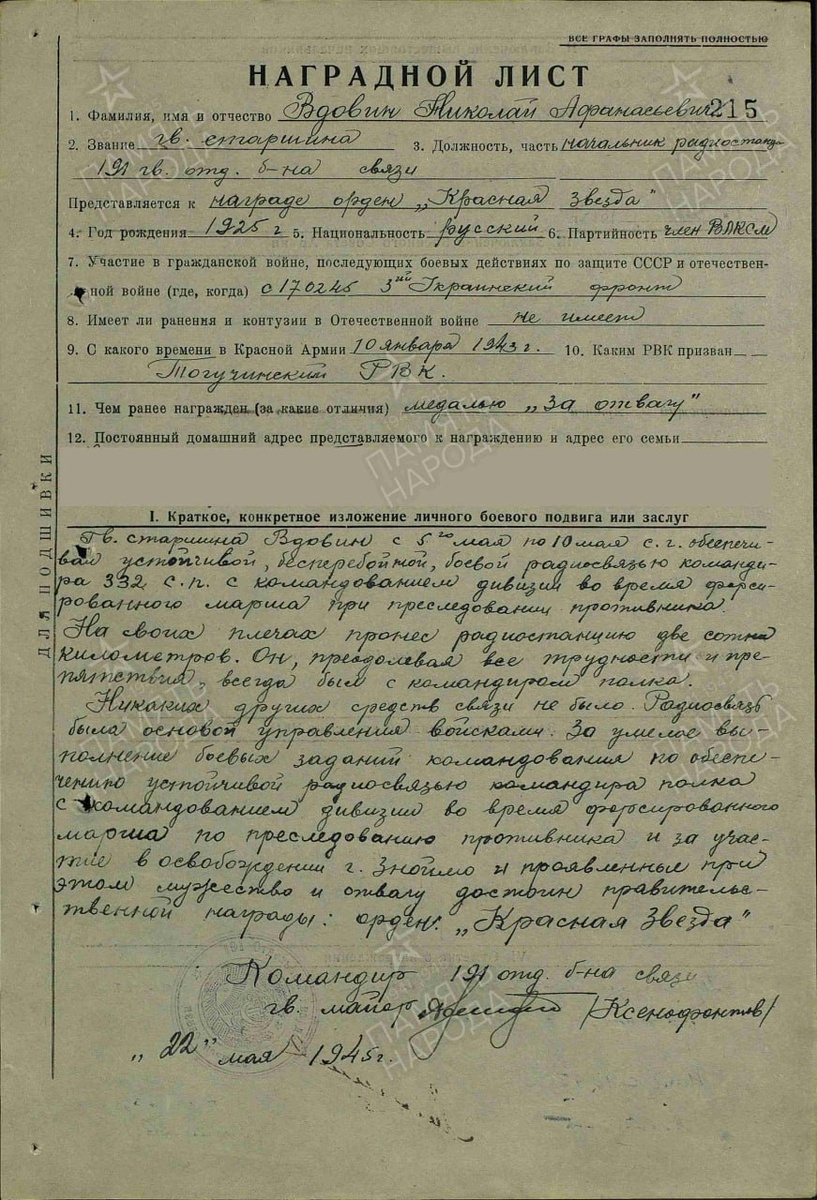 ВСЕ ГРАФЫ ЗАПОЛНЯТЬ ПОЛНОСТЬЮ
НАГРАДНОЙ ЛИСТ
1. Фамилия, имя и отчество Вдовин Николай Афанасьевич 215
2. Звание гв. старшина 3. Должность, часть начальник радиостанци
191 гв. отд. б-на связи
Представляется к награде орден „Красная Звезда"
4. Год рождения 1925 г 5. Национальность русский 6. Партийность член ВЛКСМ
7. Участие в гражданской войне, последующих боевых действиях по защите СССР и отечествен-
ной войне (где, когда) с 170245 3ий Украинский фронт
8. Имеет ли ранения и контузии в Отечественной войне не имеет
9. С какого времени в Красной Армии 10 января 1943 г. 10. Каким РВК призван
Тогучинский РВК.
11. Чем ранее награжден (за какие отличия) медалью „За отвагу"
12. Постоянный домашний адрес представляемого к награждению и адрес его семьи
I. Краткое, конкретное изложение личного боевого подвига или заслуг
Гв. старшина Вдовин с 5го мая по 10 мая с. г. обеспечи-
вал устойчивой, бесперебойной, боевой радиосвязью команди-
ра 332 с.п. с командованием дивизии во время форси-
рованного марша при преследовании противника.
На своих плечах пронес радиостанцию две сотни
километров. Он, преодолевая все трудности и пре-
пятствия, всегда был с командиром полка.
Никаких других средств связи не было. Радиосвязь
была основой управления войсками. За умелое вы-
полнение боевых заданий командования по обеспе-
чению устойчивой радиосвязью командира полка
с командованием дивизии во время форсированного
марша по преследованию противника и за учас-
тие в освобождении г. Зноймо и проявленные при
этом мужество и отвагу достоин правительс-
твенной награды: орден: „Красная Звезда"
Командир 191 отд. б-на связи
гв. майор /Ксенофонтов/
„22" мая 1945 г.
ДЛЯ ПОДШИВКИ
ПАМЯТЬ НАРОДА